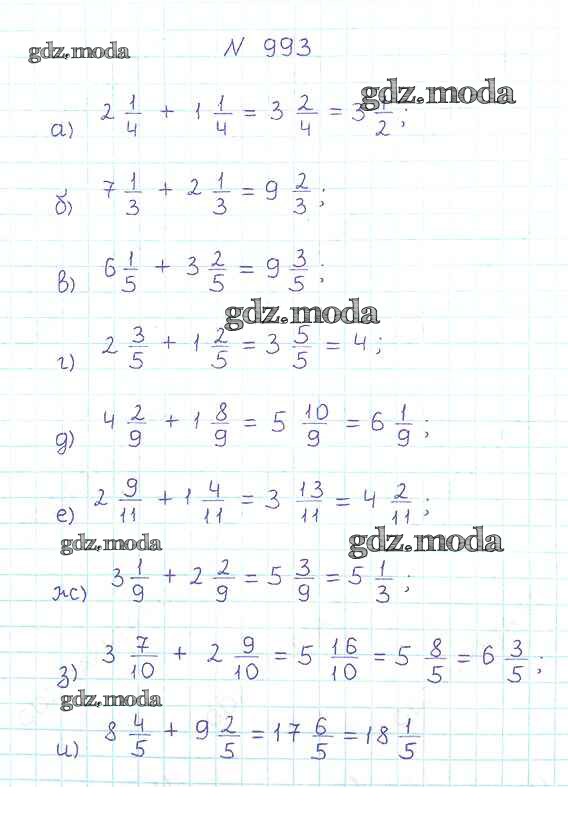 N 993
gdz.moda
gdz.moda
а) 2 1/4 + 1 1/4 = 3 2/4 = 3 1/2;
б) 7 1/3 + 2 1/3 = 9 2/3;
в) 6 1/5 + 3 2/5 = 9 3/5;
gdz.moda
г) 2 3/5 + 1 2/5 = 3 5/5 = 4;
д) 4 2/9 + 1 8/9 = 5 10/9 = 6 1/9;
е) 2 9/11 + 1 4/11 = 3 13/11 = 4 2/11;
gdz.moda
gdz.moda
ж) 3 1/9 + 2 2/9 = 5 3/9 = 5 1/3;
з) 3 7/10 + 2 9/10 = 5 16/10 = 5 8/5 = 6 3/5;
gdz.moda
и) 8 4/5 + 9 2/5 = 17 6/5 = 18 1/5